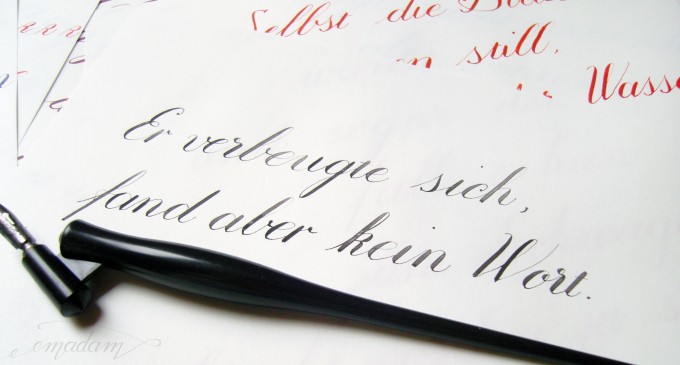 Selbst die
still,
Er verbeugte sich,
fand aber kein Wort.
emadam